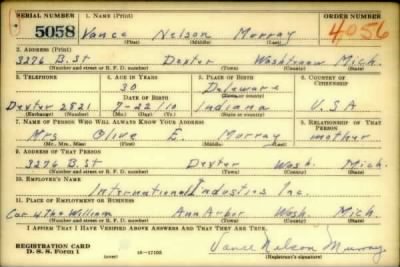 SERIAL NUMBER 1. NAME (Print) ORDER NUMBER
5058 Vance Nelson Murray 4056
(First) (Middle) (Last)
2. ADDRESS (Print)
3276 B. St Dexter Washtenaw Mich.
(Number and street or R. F. D. number) (Town) (County) (State)
3. TELEPHONE 4. AGE IN YEARS 5. PLACE OF BIRTH 6. COUNTRY OF CITIZENSHIP
30 Delaware
DATE OF BIRTH (Town or county)
Dexter 2821 8-22/10 Indiana U.S.A
(Exchange) (Number) (Mo.) (Day) (Yr.) (State or country)
7. NAME OF PERSON WHO WILL ALWAYS KNOW YOUR ADDRESS 8. RELATIONSHIP OF THAT PERSON
Mrs Olive E. Murray mother
(Mr., Mrs., Miss) (First) (Middle) (Last)
9. ADDRESS OF THAT PERSON
3276 B. St Dexter Wash. Mich.
(Number and street or R. F. D. number) (Town) (County) (State)
10. EMPLOYER'S NAME
International Industies Inc.
11. PLACE OF EMPLOYMENT OR BUSINESS
Cor. 4th William Ann Arbor Wash. Mich.
(Number and street or R. F. D. number) (Town) (County) (State)
I AFFIRM THAT I HAVE VERIFIED ABOVE ANSWERS AND THAT THEY ARE TRUE.
REGISTRATION CARD
D. S. S. Form 1 (over) 16-17105 Vance Nelson Murray
(Registrant's signature)